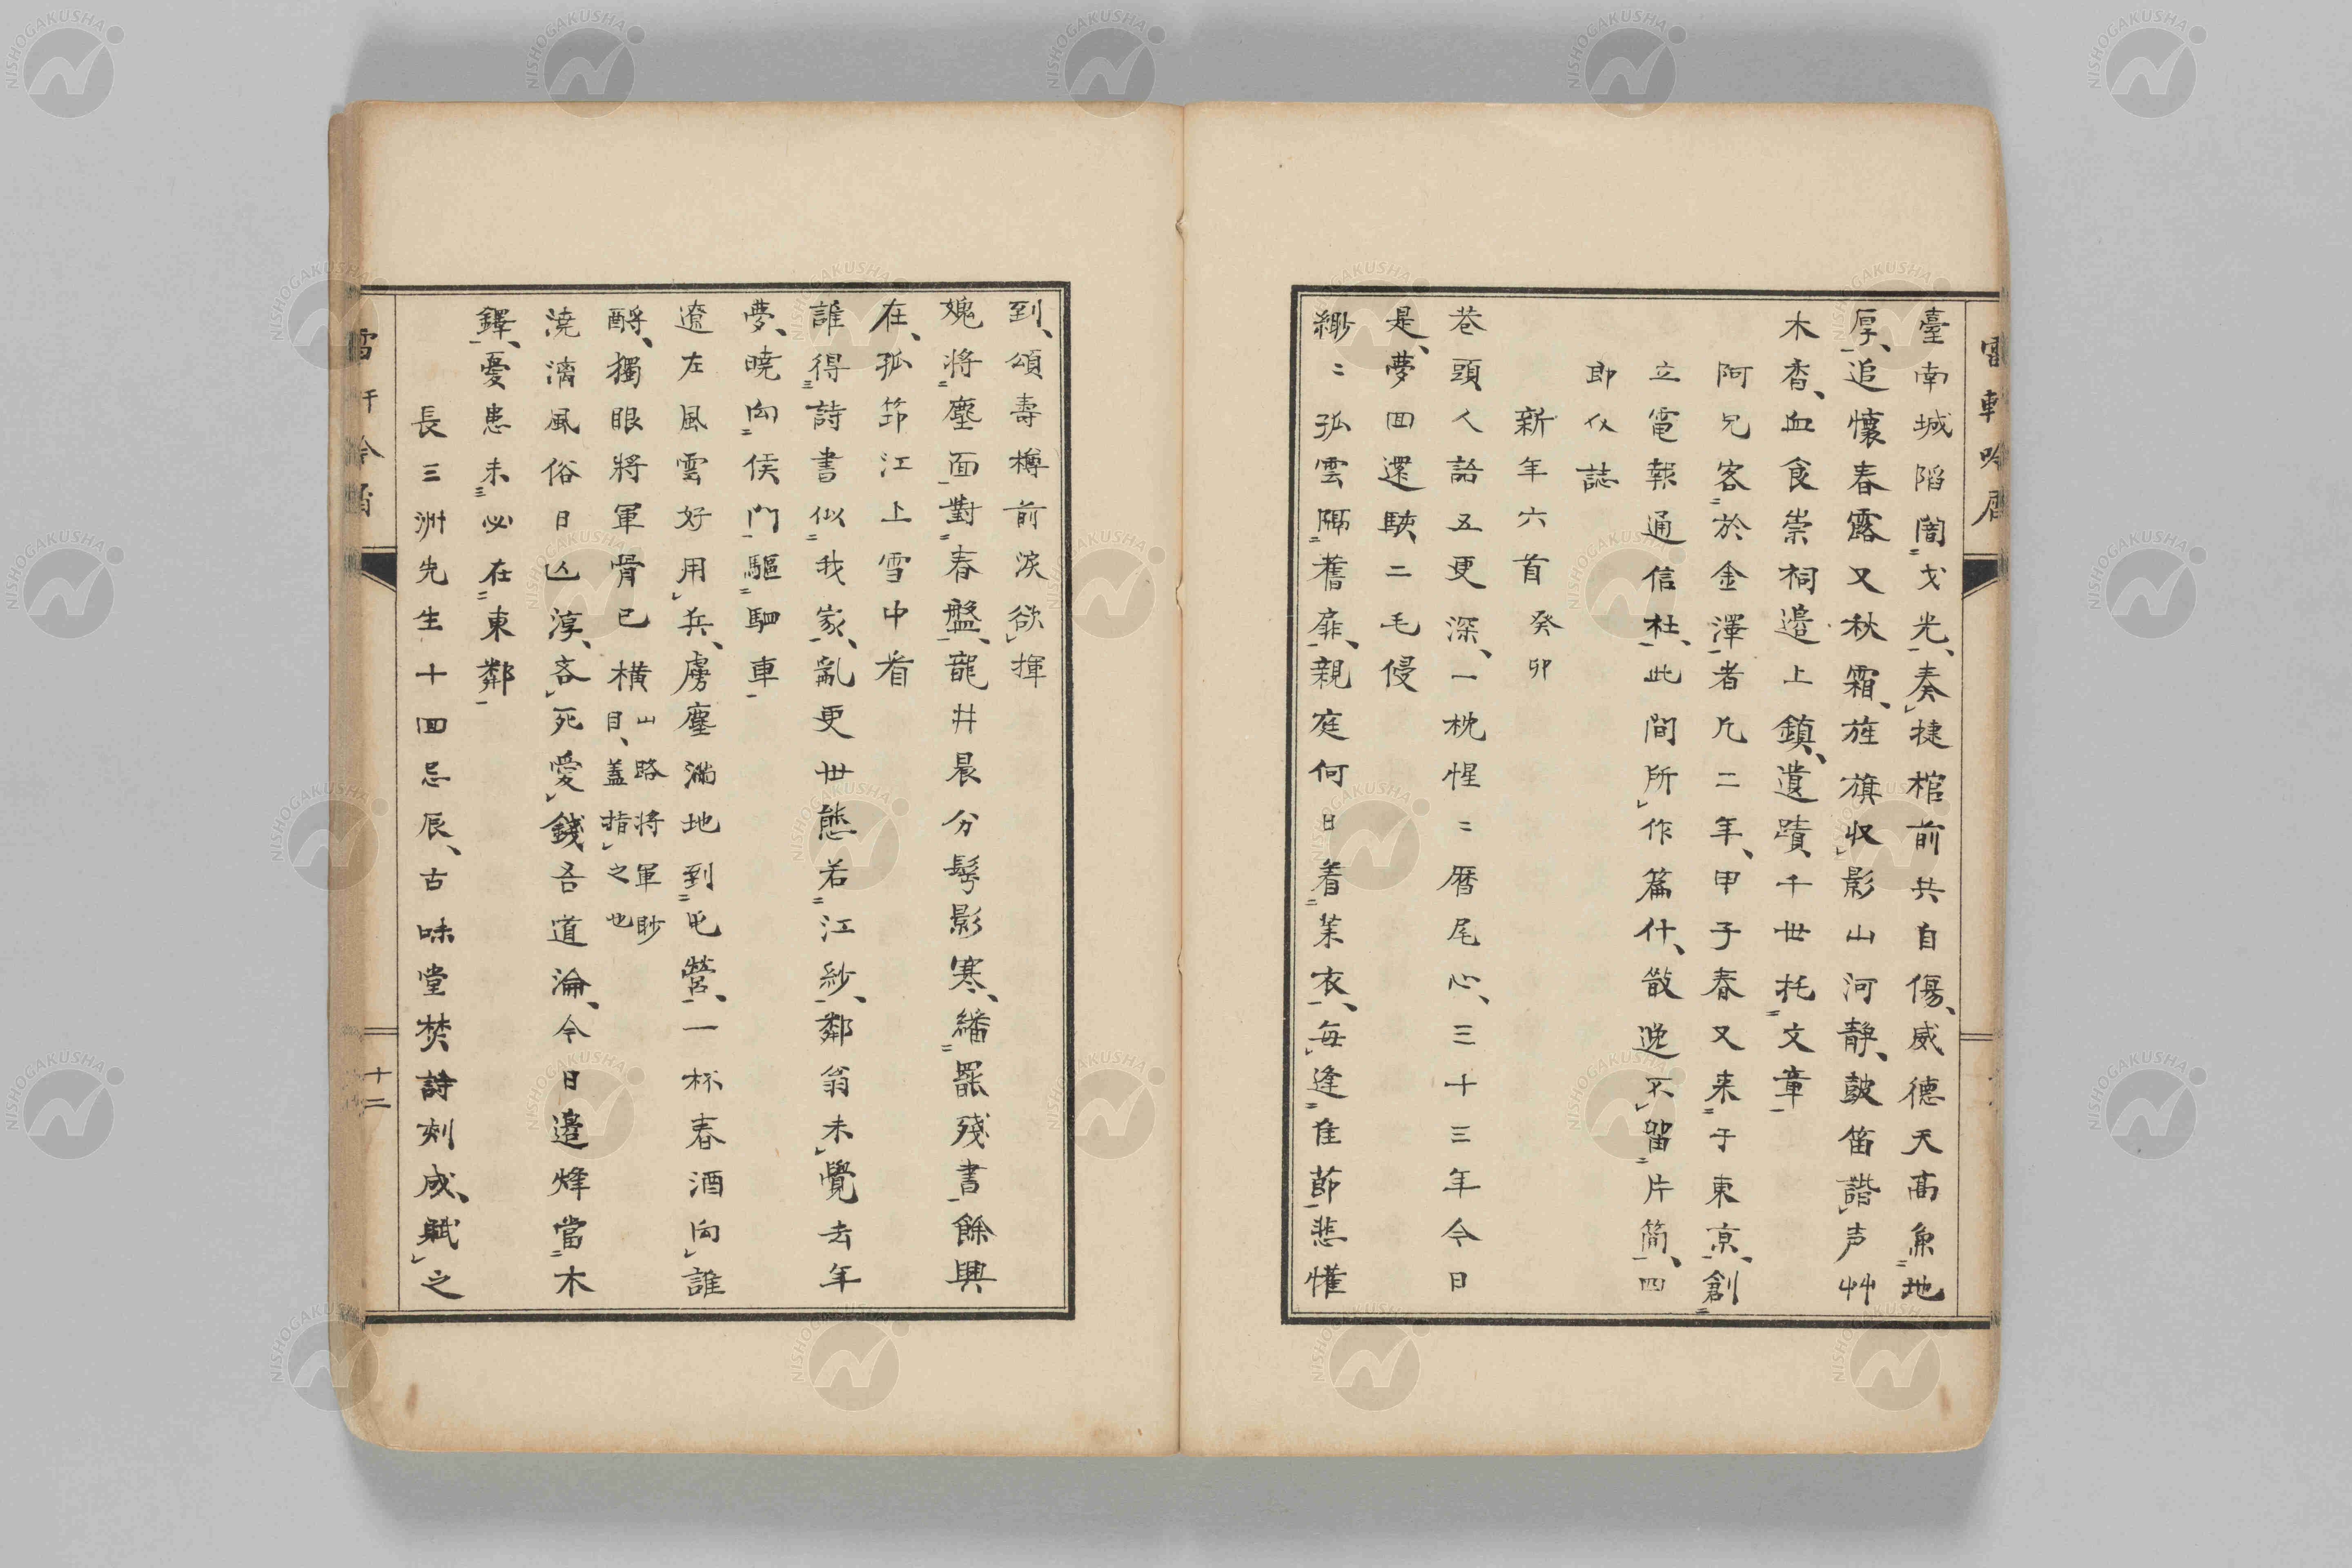 臺南城陷闇戈光、奏捷棺前共自傷、威德天高兼地
厚、追懷春露又秋霜、旌旗収影山河静、皷笛諧声艸
木杳、血食崇祠邉上鎮、遺蹟千世托文章
阿兄客於金澤者凢二年、甲子春又来于東京、創
立電報通信社、此間所作篇什、散逸不留片簡、四
即以誌
新年六首 癸卯
巷頭人語五更深、一枕惺〻暦尾心、三十三年今日
是、夢回還駛二毛侵
緲〻孤雲隔舊扉、親庭何日着萊衣、毎逢佳節悲懽
到、頌壽樽前涙欲揮
媿将塵面對春盤、龍井晨分髩影寒、繙罷殘書餘興
在、孤筇江上雪中看
誰得詩書似我家、亂更世態若江紗、鄰翁未覺去年
夢、暁向侯門驅駟車
遼左風雲好用兵、虜塵滿地到屯營、一杯春酒向誰
酹、獨眼将軍骨已横 山路将軍眇
目、蓋指之也
澆漓風俗日亾淳、吝死愛錢吾道淪、今日邉烽當木
鐸、憂患未必在東鄰
長三洲先生十回忌辰、古味堂焚詩刻成、賦之
雷軒吟屑
十二
NISHOGAKUSHA